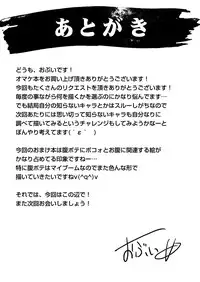 あとがき
どうも、おぶいです！
オマケ本をお買い上げ頂きありがとうございます！
今回もたくさんのリクエストを頂きありがとうございます！
毎度の事ながら何を描くかを選ぶのにかなり悩んでます…
でも結局自分の知らないキャラとかはスルーしがちなので
次回あたりには思い切って知らないキャラも自分なりに
調べて描いてみるというチャレンジもしてみようかなーと
ぼんやり考えてます(｀ε´)
今回のおまけ本は腹ボテにボコォとお腹に関連する絵が
かなり占めてる印象ですねー…
特に腹ボテはマイブームなのでまた色んな形で
描いていきたいですねv(^q^)v
それでは、今回はこの辺で！
また次回お会いしましょう！
おぶい